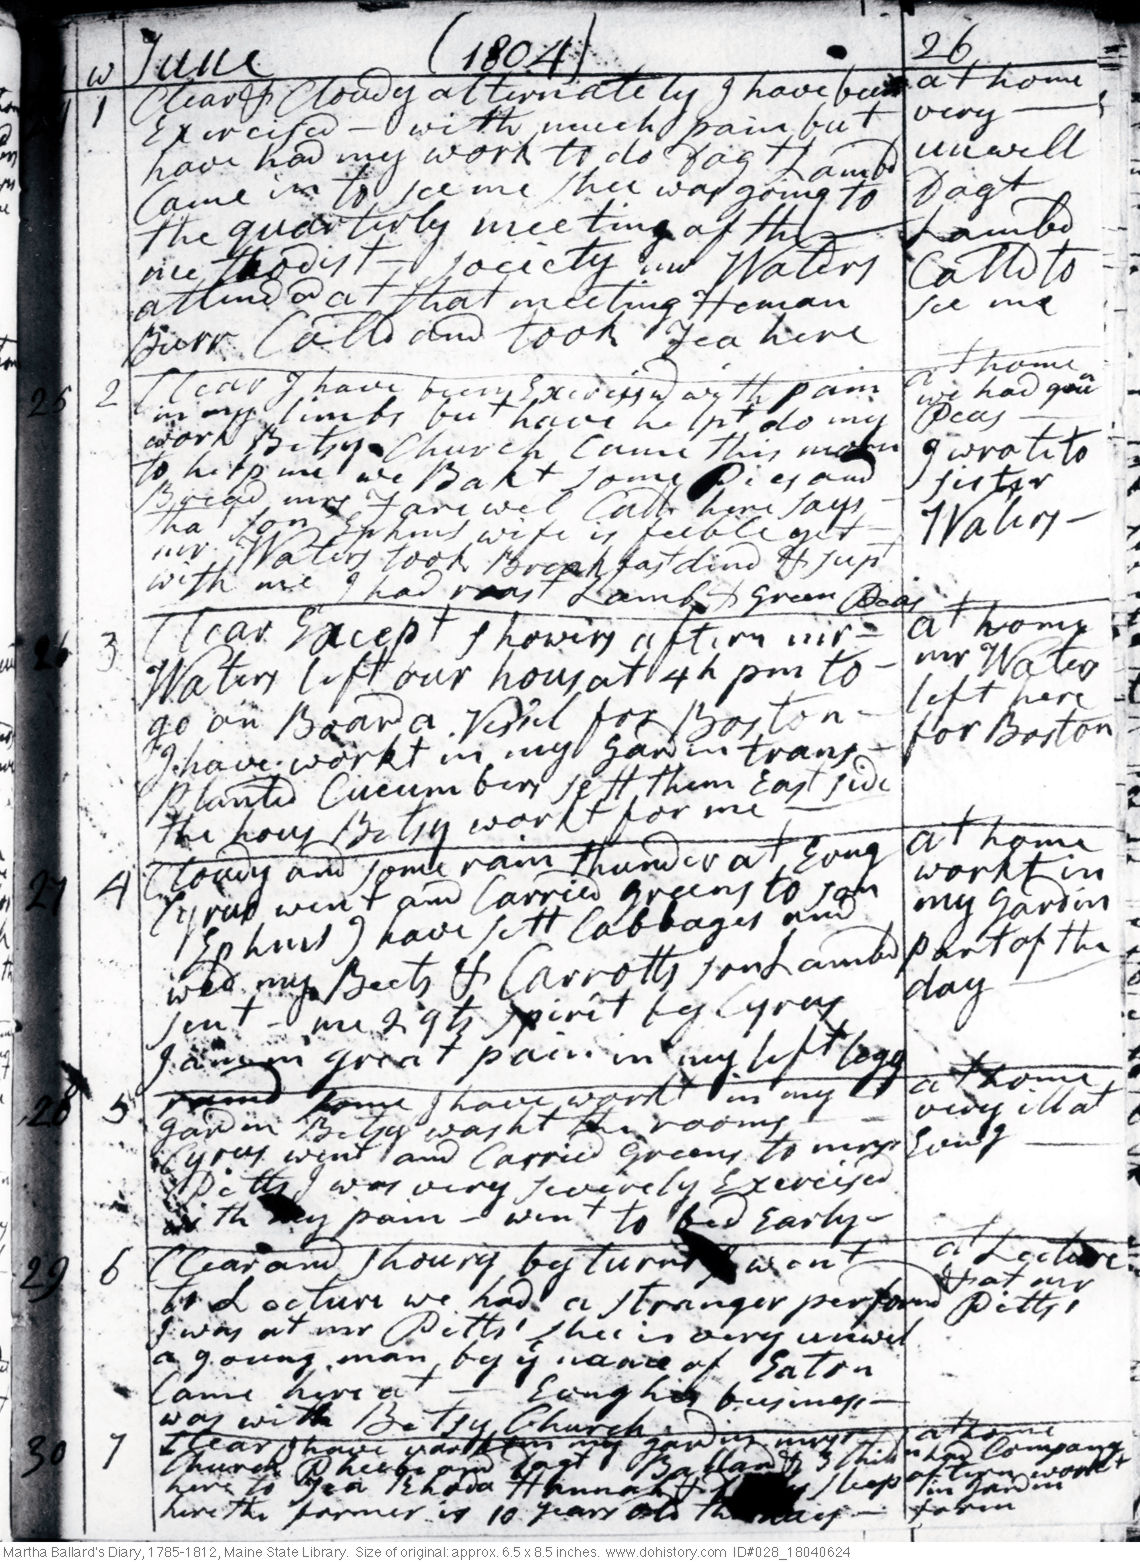 w June (1804) 26
1 Clear & Cloudy alternately I have been at home
Exercised - with much pain but very
have had my work to do Dagt Lambd unwell
Came in to see me shee was going to Dagt
the quarterly meeting of the Lambd
methodist society mr Waters Calld to
attended at that meeting Heman see me
Burr Calld and took Tea here
25 2 Clear I have been Exercisd with pain at home
in my limbs but have helpt do my we had
work Betsy Church Came this morn Peas
to help me we Bakt some Pies and I wrote to
Bread mrs Farewel Calld here says - sister
that son Ephms wife is feeble yet Waters -
mr Waters took Breakfast dind & supt
with me I had roast Lamb & green Peas
26 3 Clear Except showirs aftern mr - at home
Waters left our hous at 4h pm to - mr Waters
go on Board a Vessel for Boston - left here
I have workt in my Gardin trans - for Boston
planted Cucumbers sett them East side
the hous Betsy workt for me
27 4 Cloudy and some rain thunder at Evng at home
Cyrus went and Carried greens to son workt in
Ephms I have sett Cabbages and my gardin
wed my Beets & Carrotts son Lambd part of the
sent - me 2 qts spirit by Cyrus day
I am in great pain in my left legg
28 5 raind some I have workt in my at home
gardin Betsy washt the rooms very ill at
Cyrus went and Carried Greens to mrs Evng
Pitts I was very severely Exercised
with my pain - went to bed Early -
29 6 Clear and shoury by turns I went at Lecture
to Lecture we had a stranger performd & at mr
I was at mr Pitts' shee is very unwel Pitts'
a young man by ye name of Eaton
Came here at Evng his business -
was with Betsy Church
30 7 Clear I have workt in my gardin mrs at home
Church Phebe and Dagt Ballard & 3 Chihn had Company
here to Tea Rhoda Hannah & sleep aftern workt
here the former is 10 years old this day - in gardin
forin
Martha Ballard's Diary, 1785-1812, Maine State Library. Size of original: approx. 6.5 x 8.5 inches. www.dohistory.com ID#028_18040624